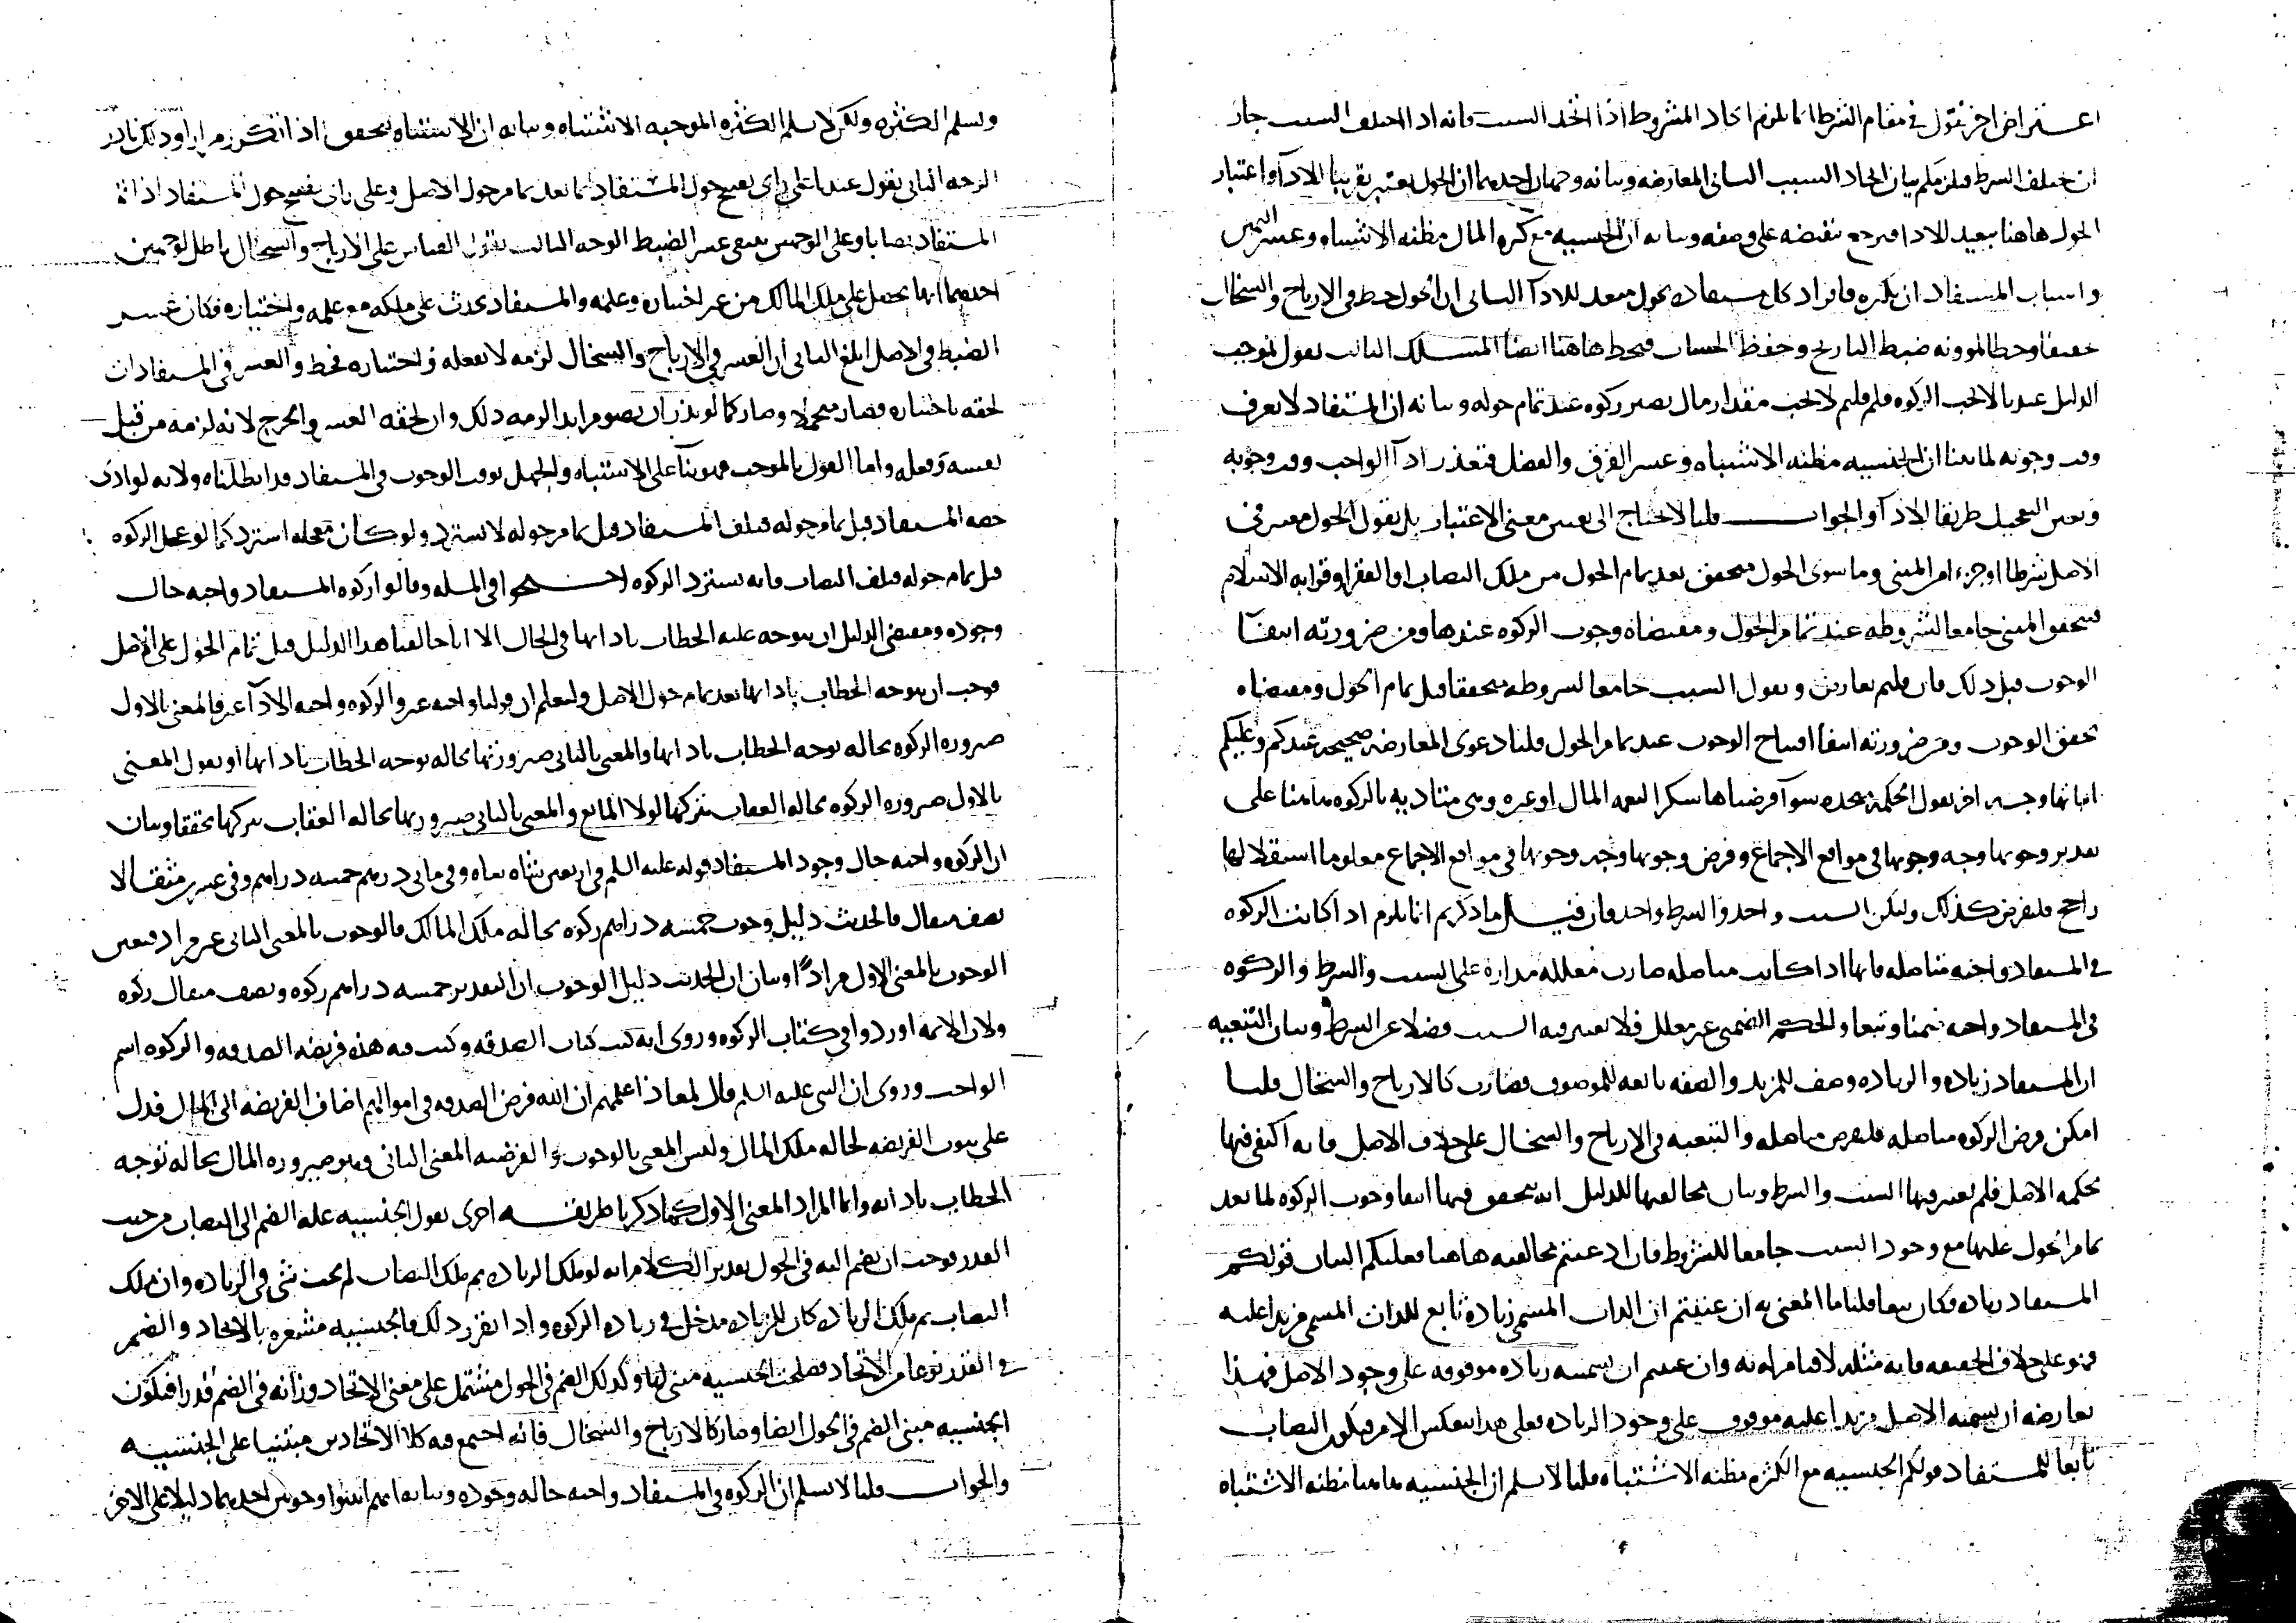 اعتراض اخر نقول في مقام الشرط انما يلزم اتحاد المشروط اذا اتحد السبب فانه اذا اختلف السبب جاز
ان يختلف الشرط فلم قلتم بيان اتحاد السبب الثاني المعارضه وبيانه وجهان احدهما ان الحول يعتبر تقريبا للادآ واعتبار
الحول هاهنا تبعيد للادا نقيضه على وصفه وبيانه ان الجنسيه مع كثره المال مظنه الاشتباه وعسر التمييز
واسباب المستفاد ان تكثره فافراد كل مستفاد بحول مبعد للادآ الثاني ان الحول حط في الارباح والسخال
تخفيفا وحطا لموونه ضبط التاريخ وحفظ الحساب فيحط هاهنا ايضا المسلك الثالث نقول بموجب
الدليل عندنا لا تجب الزكوه فلم قلتم لا يجب مقدار مال يصير زكوه عند تمام حوله وبيانه ان المستفاد لا يعرف
وقت وجوبه لما بينا ان الجنسيه مظنه الاشتباه وعسر الفرق والفصل فتعذر ادآ الواجب وقت وجوبه
وتعين التعجيل طريقا للادآ والجواب قلنا لا نحتاج الى تعيين معنى الاعتبار بل نقول الحول معتبر في
الاصل شرطا او جزءا من المعنى وما سوى الحول متحقق بعد تمام الحول من ملك النصاب او الفقر او قرابه الاسلام
فيتحقق المعنى جامعا لشروطه عند تمام الحول ومقتضاه وجوب الزكوه عندها ومن ضرورته انتفآ
الوجوب قبل ذلك فان قلتم نعارض ونقول السبب جامعا لشروطه متحققا قبل تمام الحول ومقتضاه
تحقق الوجوب ومن ضرورته انتفا افتتاح الوجوب عند تمام الحول قلنا دعوى المعارضه صحيحه عندكم وعليكم
اثباتها وجه اخر نقول الحكمه متحده سوآ فرضناها شكر النعمه المال او غيره وهي متاديه بالزكوه
تقدير وجوبها وجه وجوبها في مواقع الاجماع وفرض وجوبها وجه وجوبها في مواقع الاجماع معلوما
راجح فليفرض كذلك وليكن السبب واحدا والشرط واحدا فان قيل ما ذكرتم انما يلزم اذا كانت الزكوه
في المستفاد واجبه متاصله فانها اذا كانت متاصله صارت معلله مداره على السبب والشرط والزكوه
في المستفاد واجبه ضمنا وتبعا والحكم الضمني غير معلل فلا يعتبر فيه السبب فضلا عن الشرط وبيان التبعيه
ان المستفاد زياده والزياده وصف للمزيد والصفه تابعه للموصوف فصارت كالارباح والسخال قلنا
امكن فرض الزكوه متاصله فلتفرض متاصله والتبعيه في الارباح والسخال على خلاف الاصل فانه اكتفى فيها
بحكمه الاصل فلم يعتبر فيها السبب والشرط وبيان مخالفتها للدليل انه يتحقق فيها انتفا وجوب الزكوه لما بعد
تمام الحول عليها مع وجود السبب جامعا للشروط فان ادعيتم مخالفته هاهنا فعليكم البيان قولكم
المستفاد زياده فكان تبعا قلنا ما المعنى به ان عنيتم ان الذات المسمى زيادة تابع للذات المسمى مزيدا عليه
فهو على خلاف الحقيقه فانه مثله لا قيام له به وان عنيتم ان تسميته زياده موقوفه على وجود الاصل فهذا
نعارضه ان تسميه الاصل مزيدا عليه موقوف على وجود الزياده فعلى هذا ينعكس الامر فيكون النصاب
تابعا للمستفاد قولكم الجنسيه مع الكثره مظنه الاشتباه قلنا لا نسلم ان الجنسيه هاهنا مظنه الاشتباه
ونسلم الكثره ولكن لا نسلم الكثره الموجبه الاشتباه وبيانه ان الاشتباه يتحقق اذا تكرر مرارا وذلك نادر
الوجه الثاني نقول عندنا على راى يفتح حول المستفاد لما بعد تمام حول الاصل وعلى راى يفتح حول المستفاد اذا تم
المستفاد نصابا وعلى الوجهين ينتفي عسر الضبط الوجه الثالث نقول القياس على الارباح والسخال باطل لوجهين
احدهما انها تحصل على ملك المالك من غير اختياره وعلمه والمستفاد يحدث على ملكه مع علمه واختياره فكان عسر
الضبط في الاصل ابلغ الثاني ان العسر في الارباح والسخال لزمه لا بفعله واختياره فحط والعسر في المستفاد ان
لحقه باختياره فصار متحملا وصار كما لو نذر ان يصوم ابدا لزمه ذلك وان لحقه العسر والحرج لانه لزمه من قبل
نفسه وفعله واما القول بالموجب فهو بنآ على الاشتباه والجهل بوقت الوجوب في المستفاد وقد ابطلناه ولانه لو ادى
حصه المستفاد قبل تمام حوله فتلف المستفاد قبل تمام حوله لا يسترد ولو كان تعجله استرد كما لو عجل الزكوه
قبل تمام حوله فتلف النصاب فانه يسترد الزكوه احتجوا في المسله وقالوا زكوه المستفاد واجبه حال
وجوده ومقتضى الدليل ان يتوجه عليه الخطاب بادائها في الحال الا انا خالفنا هذا الدليل قبل تمام الحول على الاصل
فوجب ان يتوجه الخطاب بادائها بعد تمام حول الاصل وليعلم ان قولنا واجبه غير والزكوه واجبه الادآ غير فالمعنى بالاول
صيروره الزكوه بحاله توجه الخطاب بادائها والمعنى بالثاني صيرورتها بحاله توجه الخطاب بادائها او نقول المعنى
بالاول صيروره الزكوه بحاله العقاب بتركها لولا المانع والمعنى بالثاني صيرورتها بحاله العقاب بتركها تحققا وبيان
ان الزكوه واجبه حال وجود المستفاد قوله عليه السلم في اربعين شاه شاه وفي مائتي درهم خمسه دراهم وفي عشرين مثقالا
نصف مثقال فالحديث دليل وجوب خمسه دراهم زكوه بحاله ملك المالك فالوجوب بالمعنى الثاني غير مراد فتعين
الوجوب بالمعنى الاول مرادا وبيان ان الحديث دليل الوجوب ان التقدير خمسه دراهم زكوه ونصف مثقال زكوه
ولان الائمه اوردوا في كتاب الزكوه وروي انه كتب كتاب الصدقه وكتب فيه هذه فريضه الصدقه والزكوه اسم
الواجب وروي ان النبي عليه السلم قال لمعاذ اعلمهم ان الله فرض الصدقه في اموالهم اضاف الفريضه الى المال فدل
على ثبوت الفريضه لحاله ملك المال وليس المعنى بالوجوب والفرضيه المعنى الثاني وهو صيروره المال بحاله توجه
الخطاب بادائه وانما المراد المعنى الاول كما ذكرنا طريقه اخرى نقول الجنسيه عله الضم الى النصاب من حيث
القدر فوجب ان يضم اليه في الحول تقدير الكلام انه لو ملك الزياده ثم ملك النصاب لم يجب شي في الزياده وان ملك
النصاب ثم ملك الزياده كان للزياده مدخل في زياده الزكوه واذا تقرر ذلك فالجنسيه مشعره بالاتحاد والضم
في القدر نوع من الاتحاد فصلحت الجنسيه مبنى لها وكذلك الضم في الحول مشتمل على معنى الاتحاد وزانه في الضم قدرا فيكون
الجنسيه مبنى الضم في الحول ايضا وصار كالارباح والسخال فانه اجتمع فيه كلا الاتحادين مبتنيا على الجنسيه
والجواب قلنا لا نسلم ان الزكوه في المستفاد واجبه حاله وجوده وبيانه انهم اثبتوا وجوبين احدهما دليلا على الاخر